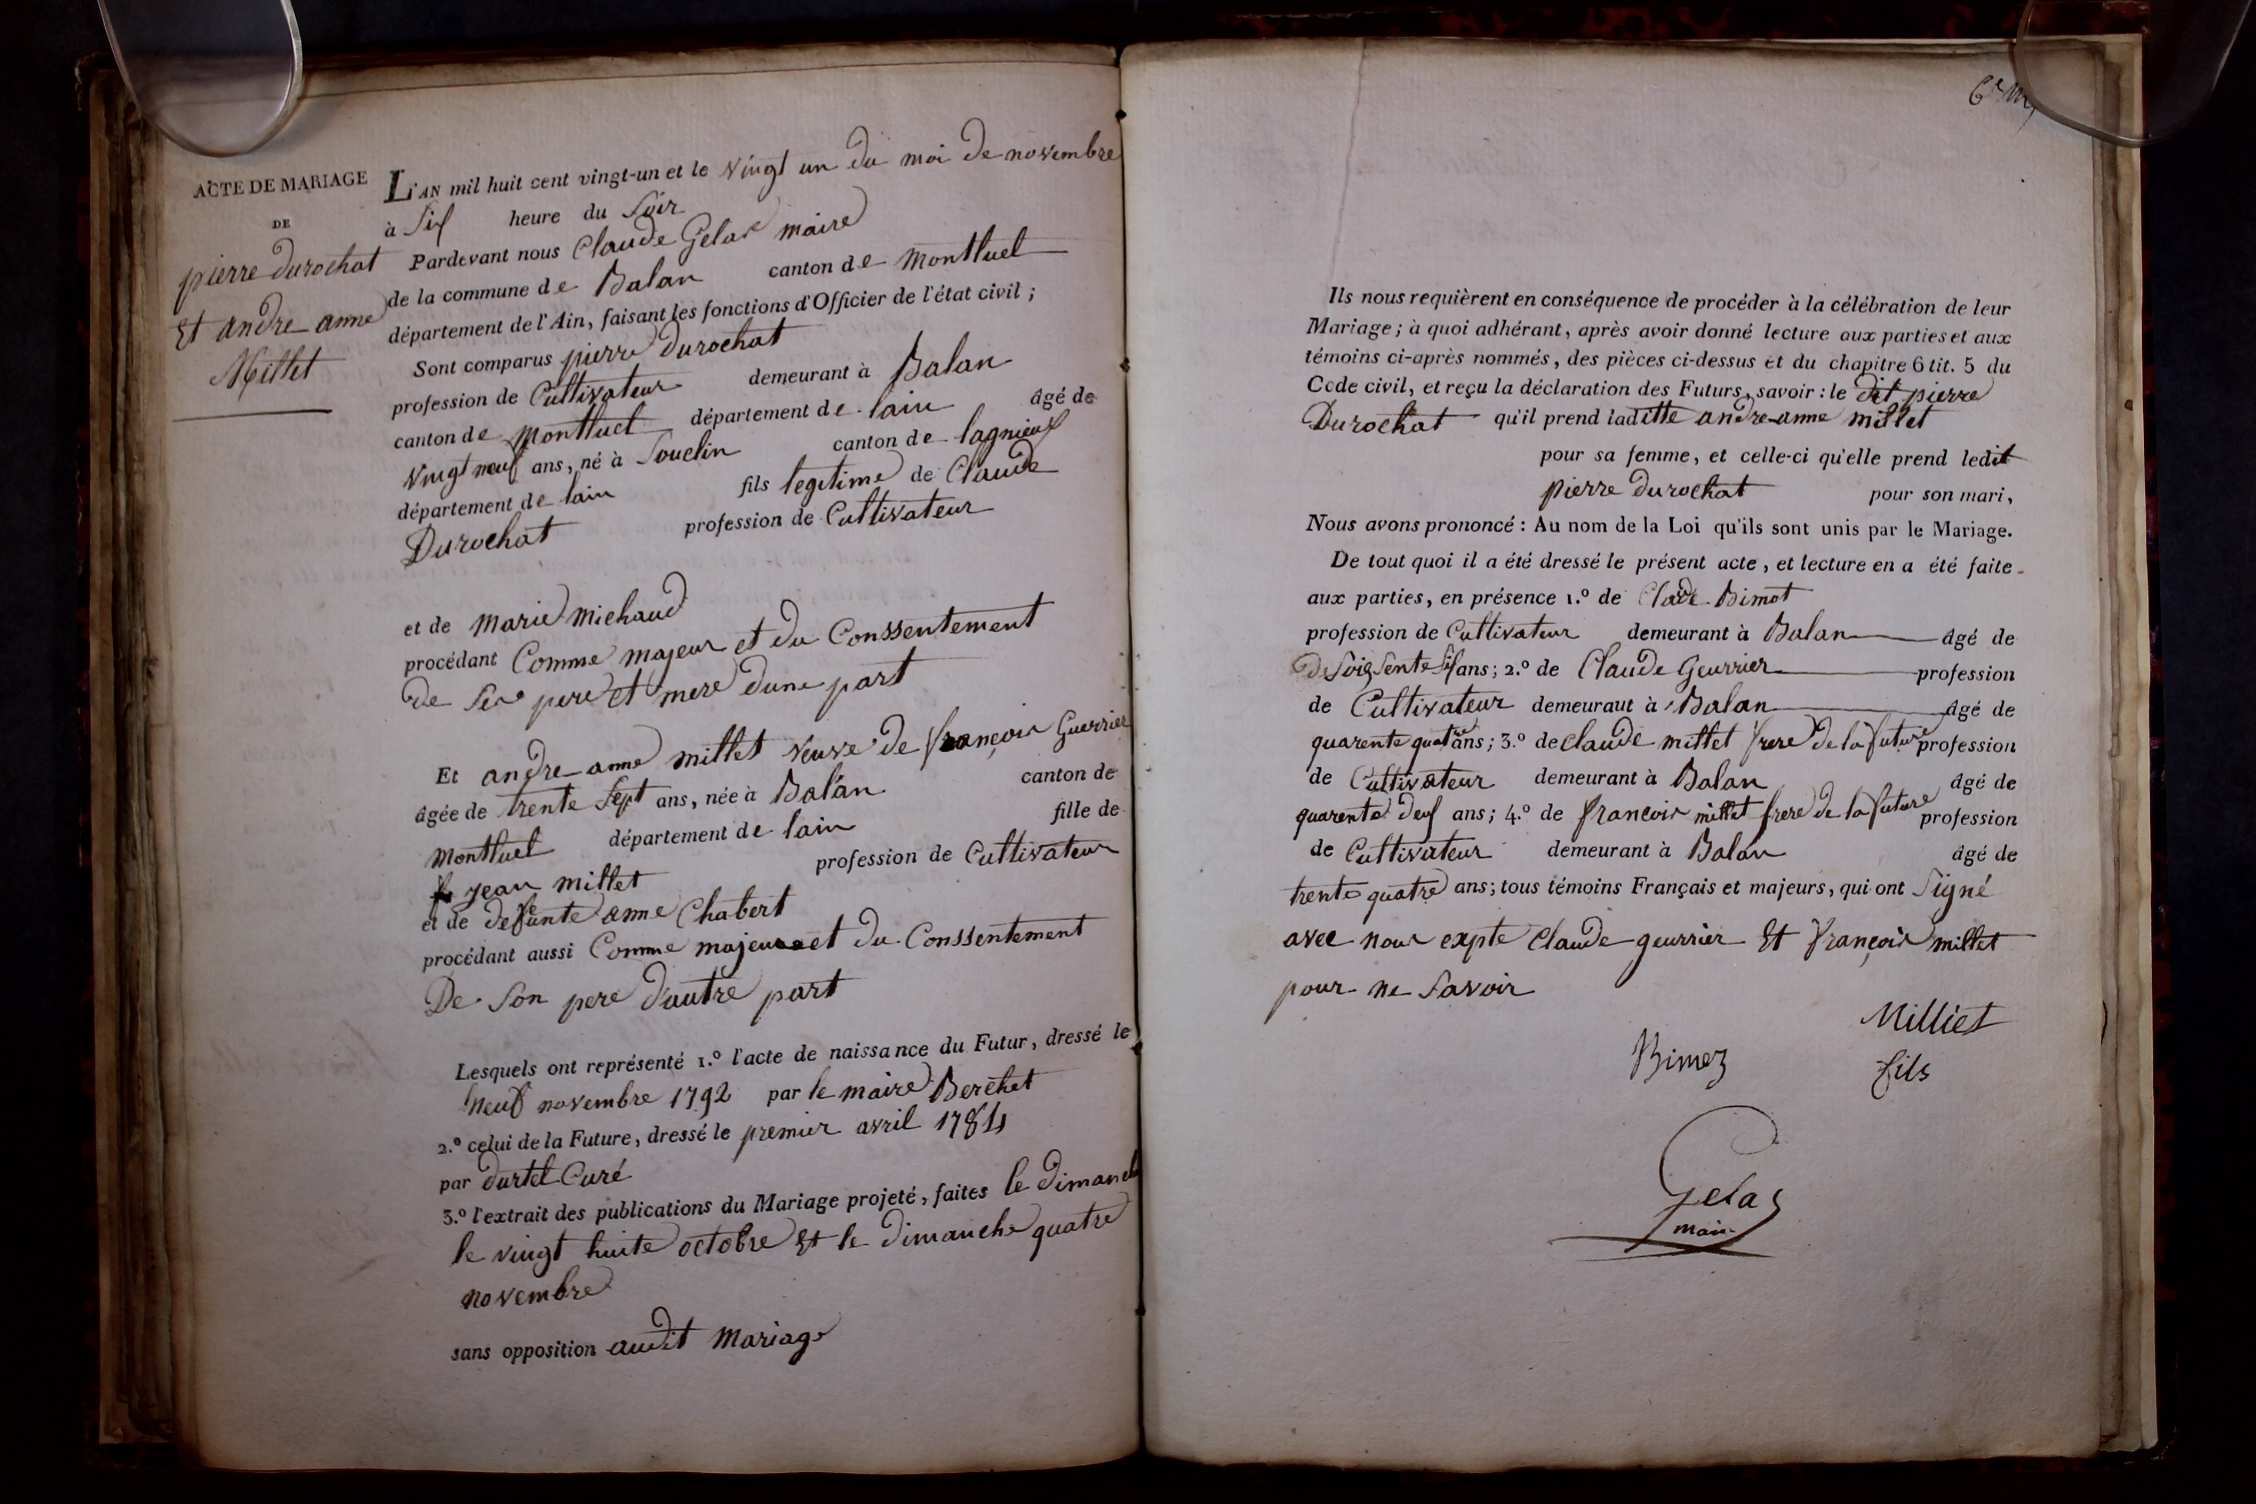 ACTE DE MARIAGE
DE
pierre durochat
Et andre anne
Millet
L'AN mil huit cent vingt-un et le vingt un du moi de novembre
à Six heure du Soir
Pardevant nous Claude Gelas maire
de la commune de Balan canton de Montluel
département de l'Ain, faisant les fonctions d'Officier de l'état civil ;
Sont comparus pierre durochat
profession de Cultivateur demeurant à Balan
canton de Montluel département de lain âgé de
vingt neuf ans, né à Souclin canton de lagnieux
département de lain fils legitime de Claude
Durochat profession de Cultivateur
et de marie michaud
procédant Comme majeur et du Conssentement
de Ses pere et mere dune part
Et andre anne millet veuve de françois Guerrier
âgée de trente Sept ans, née à Balan canton de
Montluel département de lain fille de
jean millet profession de Cultivateur
et de defunte anne Chabert
procédant aussi Comme majeur et du Conssentement
De Son pere d'autre part
Lesquels ont représenté 1.º l'acte de naissance du Futur, dressé le
neuf novembre 1792 par le maire Berchet
2.º celui de la Future, dressé le premier avril 1784
par durtel Curé
3.º l'extrait des publications du Mariage projeté, faites le dimanche
le vingt huite octobre Et le dimanche quatre
novembre
sans opposition audit mariage
Ils nous requièrent en conséquence de procéder à la célébration de leur
Mariage ; à quoi adhérant, après avoir donné lecture aux parties et aux
témoins ci-après nommés, des pièces ci-dessus et du chapitre 6 tit. 5 du
Code civil, et reçu la déclaration des Futurs, savoir : le dit pierre
Durochat qu'il prend laditte andre-anne millet
pour sa femme, et celle-ci qu'elle prend ledit
pierre durochat pour son mari,
Nous avons prononcé : Au nom de la Loi qu'ils sont unis par le Mariage.
De tout quoi il a été dressé le présent acte, et lecture en a été faite
aux parties, en présence 1.º de Bimet
profession de Cultivateur demeurant à Balan âgé de
de Soigsente Six ans ; 2.º de Claude Geurrier profession
de Cultivateur demeuraut à Balan âgé de
quarente quatre ans ; 3.º de claude millet frere de la future profession
de Cultivateur demeurant à Balan âgé de
quarente deux ans ; 4.º de françois millet frere de la future profession
de Cultivateur demeurant à Balan âgé de
trente quatre ans ; tous témoins Français et majeurs, qui ont Signé
avec nous expte Claude geurrier Et françois millet
pour ne Savoir
Milliet
Bimez
fils
Gelas
maire